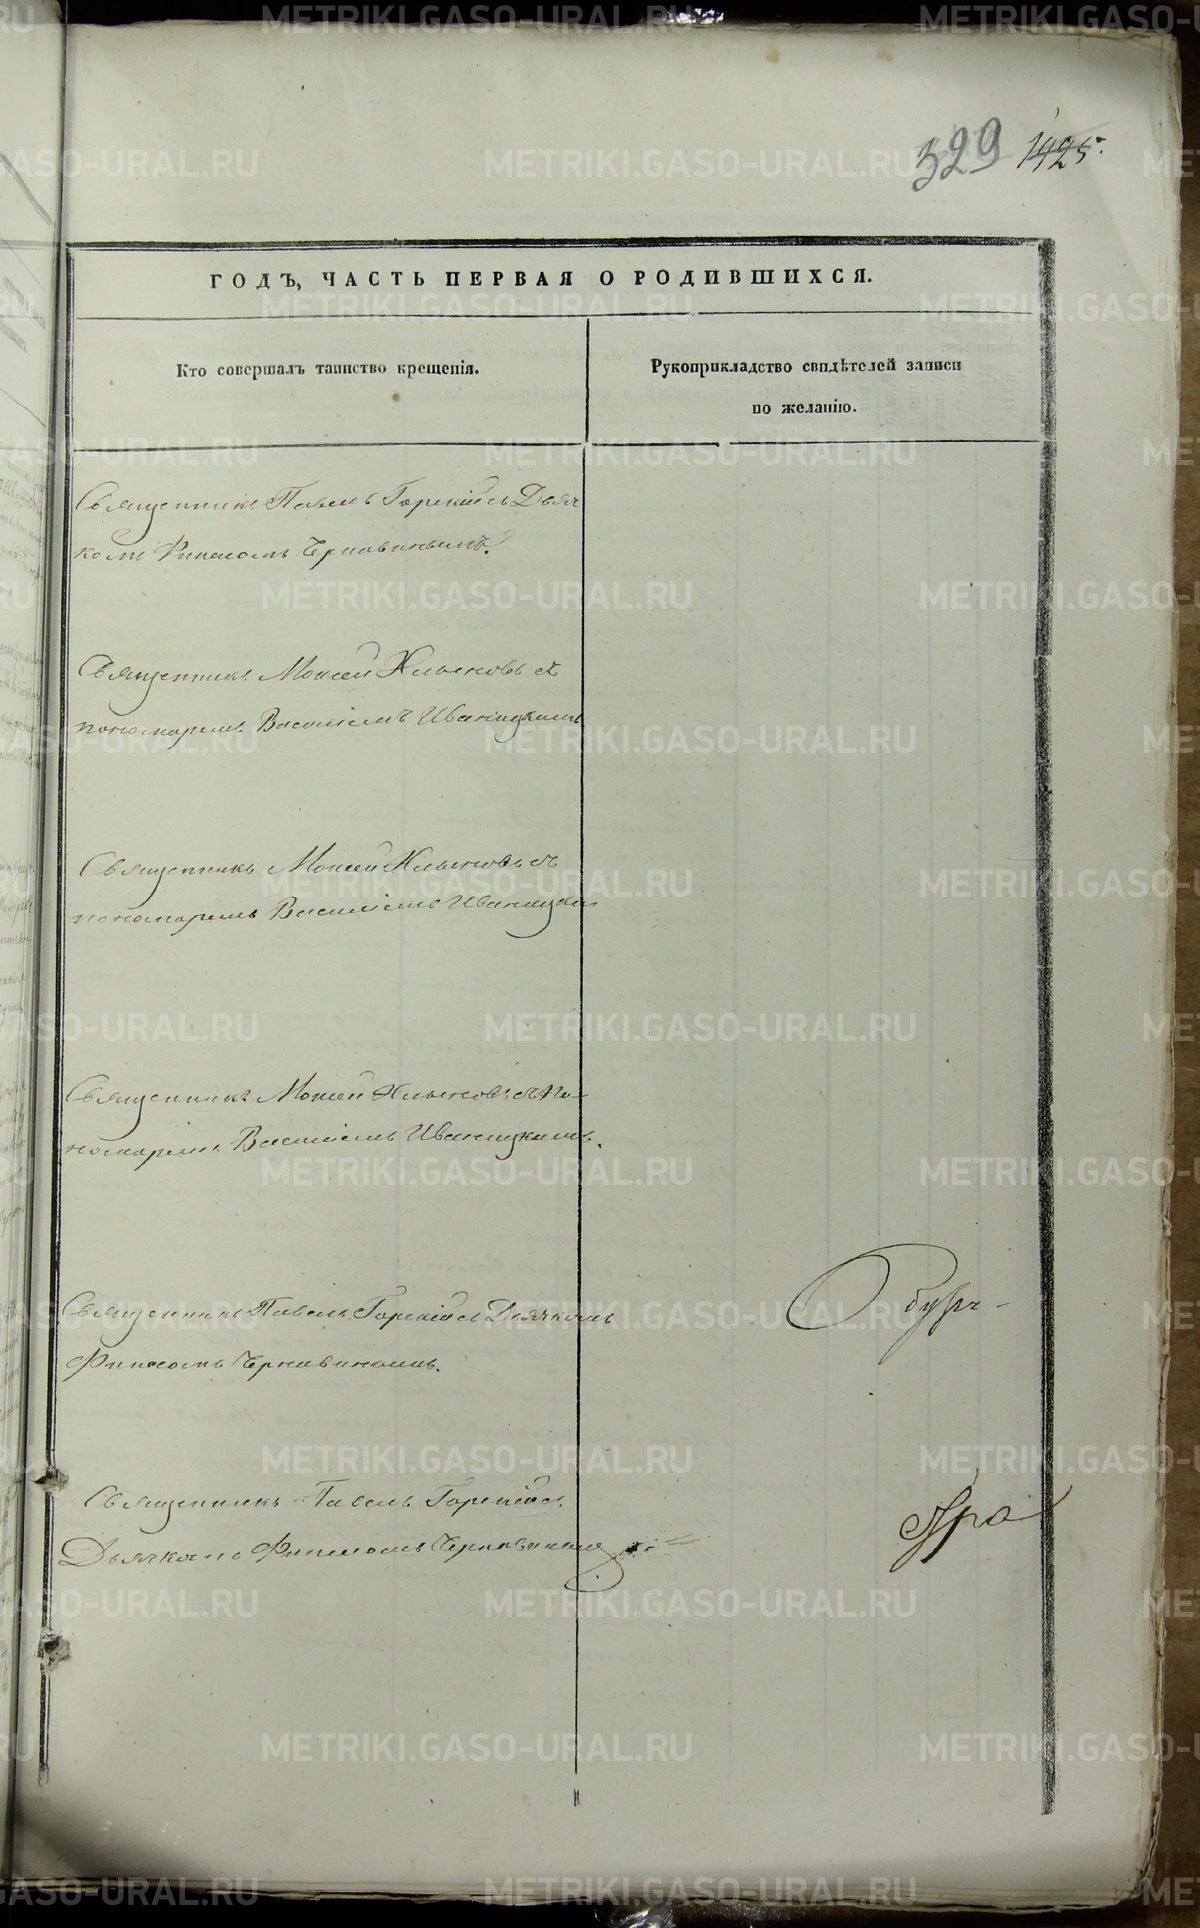 329 1425.
ГОДЪ, ЧАСТЬ ПЕРВАЯ О РОДИВШИХСЯ.
Кто совершалъ таинство крещенія.
Рукоприкладство свидѣтелей записи
по желанію.
Священникъ Павелъ Горскій съ Дьяч
комъ Финеесомъ Чернавинымъ.
Священникъ Моисей Хлыновъ съ
пономаремъ Василіемъ Иваницкимъ
Священникъ Моисей Хлыновъ съ
пономаремъ Василіемъ Иваницким
Священникъ Моисей Хлыновъ съ по-
номаремъ Василіемъ Иваницкимъ.
Священникъ Павелъ Горскій съ Дьячкомъ
Финеесомъ Чернавинымъ.
Священникъ Павелъ Горскій съ
Дьячкомъ Финеесомъ Чернавиным
METRIKI.GASO-URAL.RU